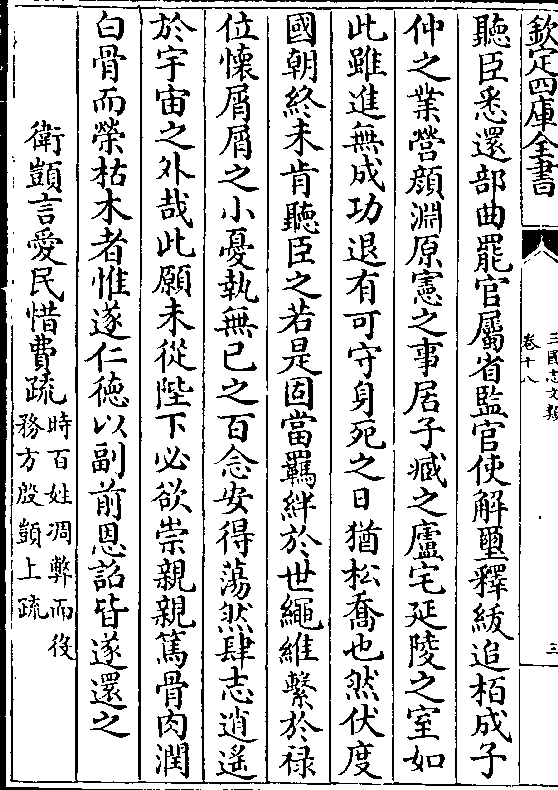 欽定四庫全書
三國志文類
卷十八
三
聽臣悉還部曲罷官屬省監官使解璽釋紱追栢成子
仲之業營顔淵原憲之事居子臧之廬宅延陵之室如
此雖進無成功退有可守身死之日猶松喬也然伏度
國朝終未肯聽臣之若是固當羈絆於世繩維繫於禄
位懷屑屑之小憂執無已之百念安得蕩然肆志逍遥
於宇宙之外哉此願未從陛下必欲崇親親篤骨肉潤
白骨而榮枯木者惟遂仁徳以副前恩詔皆遂還之
衛顗言愛民惜費疏
時百姓凋弊而役
務方殷顗上疏